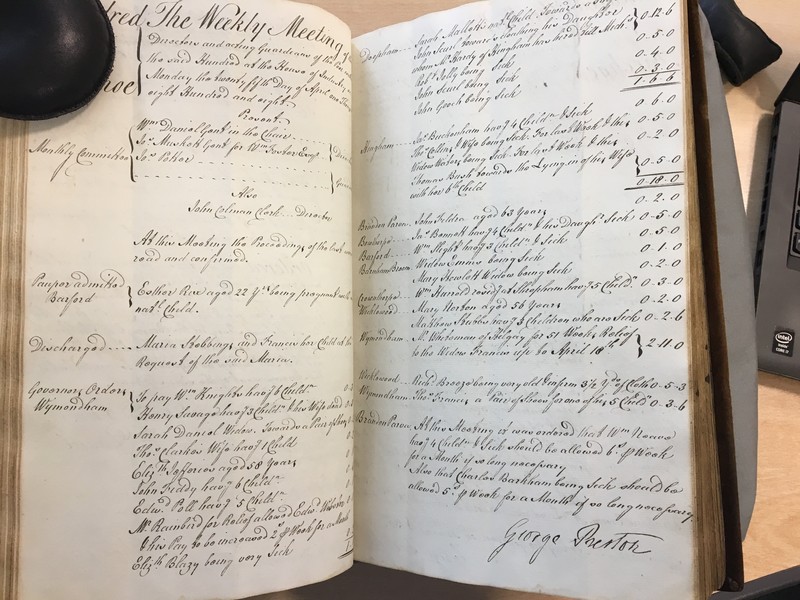 dred The Weekly Meeting of
Directors and acting Guardians of the Poor
the said Hundred at the House of Industry
Monday the twenty fifth Day of April one Thous
eight Hundred and eight
Present
Wm Daniel Gont in the Chair
Monthly Committee
Jas Muskett Gent for Wm Foster Esqr
Jos Poker
Also
John Colman Clark Director
At this Meeting the Proceedings of the last
read and confirmed.
Pauper admitted
Barford
Esther Roe aged 22 Yrs being pregnant
natl Child.
Discharged
Maria Stebbings and Francis her Child at the
Request of the said Maria.
Governors Orders
Wymondham
To pay Wm Knights havg 6 Childn
Henry Savage havg 3 Childn & his Wife dead
Sarah Daniel Widow Towards a Pair of
Thos Clarkes Wife havg 1 Child
Elizth Jefferies aged 58 Years
John Fiddy havg 6 Childn
Edwd Poll havg 5 Childn
Mr Rainbird for Relief allowed Edwd
& his Pay to be increased 2s P Week for a Month
Elizth Blazy being very Sick
Deopham Sarah Malletts Child Towards
John Scurl towards cloathing his Daughter
whom Mr Hardy of Hingham has hired till Michs 0-12-6
Robt Jolly being Sick 0-5-0
John Scurl being Sick 0-4-0
John Gooch being Sick 0-3-0
7-6-6
Hingham Jas Buckenham havg 4 Childn & Sick 0-6-0
Thos Collins & Wife being Sick For last Week & this 0-5-0
Widow Waters being Sick For last Week & this 0-2-0
Thomas Bush towards the Lying in of his Wife
with her 6th Child 0-5-0
0-18-0
Branden Parva John Feltra aged 63 Years 0-2-0
Jas Bennett havg 4 Childn & his Daughr Sick 0-5-0
Barford Wm Flight havg 3 Childn & Sick 0-5-0
Barnham Broom Widow Emais being Sick 0-1-0
Mary Hewlett Widow being Sick 0-2-0
Crownthorpe Wm Harrold resid. at Shropham havg 5 Childn 0-3-0
Wicklewood Mary Norton aged 56 Years 0-2-0
Matthew Stubbs havg 3 Children who are Sick 0-2-6
Wymondham Mr Whereman of Filgay for 51 Weeks Relief
to the Widow Francis ufe to April 18th 2-11-0
Wicklewood Richd Brooze being very old & infirm 3½ Yds of Cloth 0-5-3
Wymondham Thos Francis, a Pair of Shoes for one of his 5 Childn 0-3-6
Branden Parva At the Meeting it was ordered that Wm
havg 4 Childn & Sick should be allowed 6s P Week
for a Month if so long necessary
Also that Charles Barkham being Sick should be
allowed 5s P Week for a Month if so long necessary.
George Preston
intel
inside
CORE i7